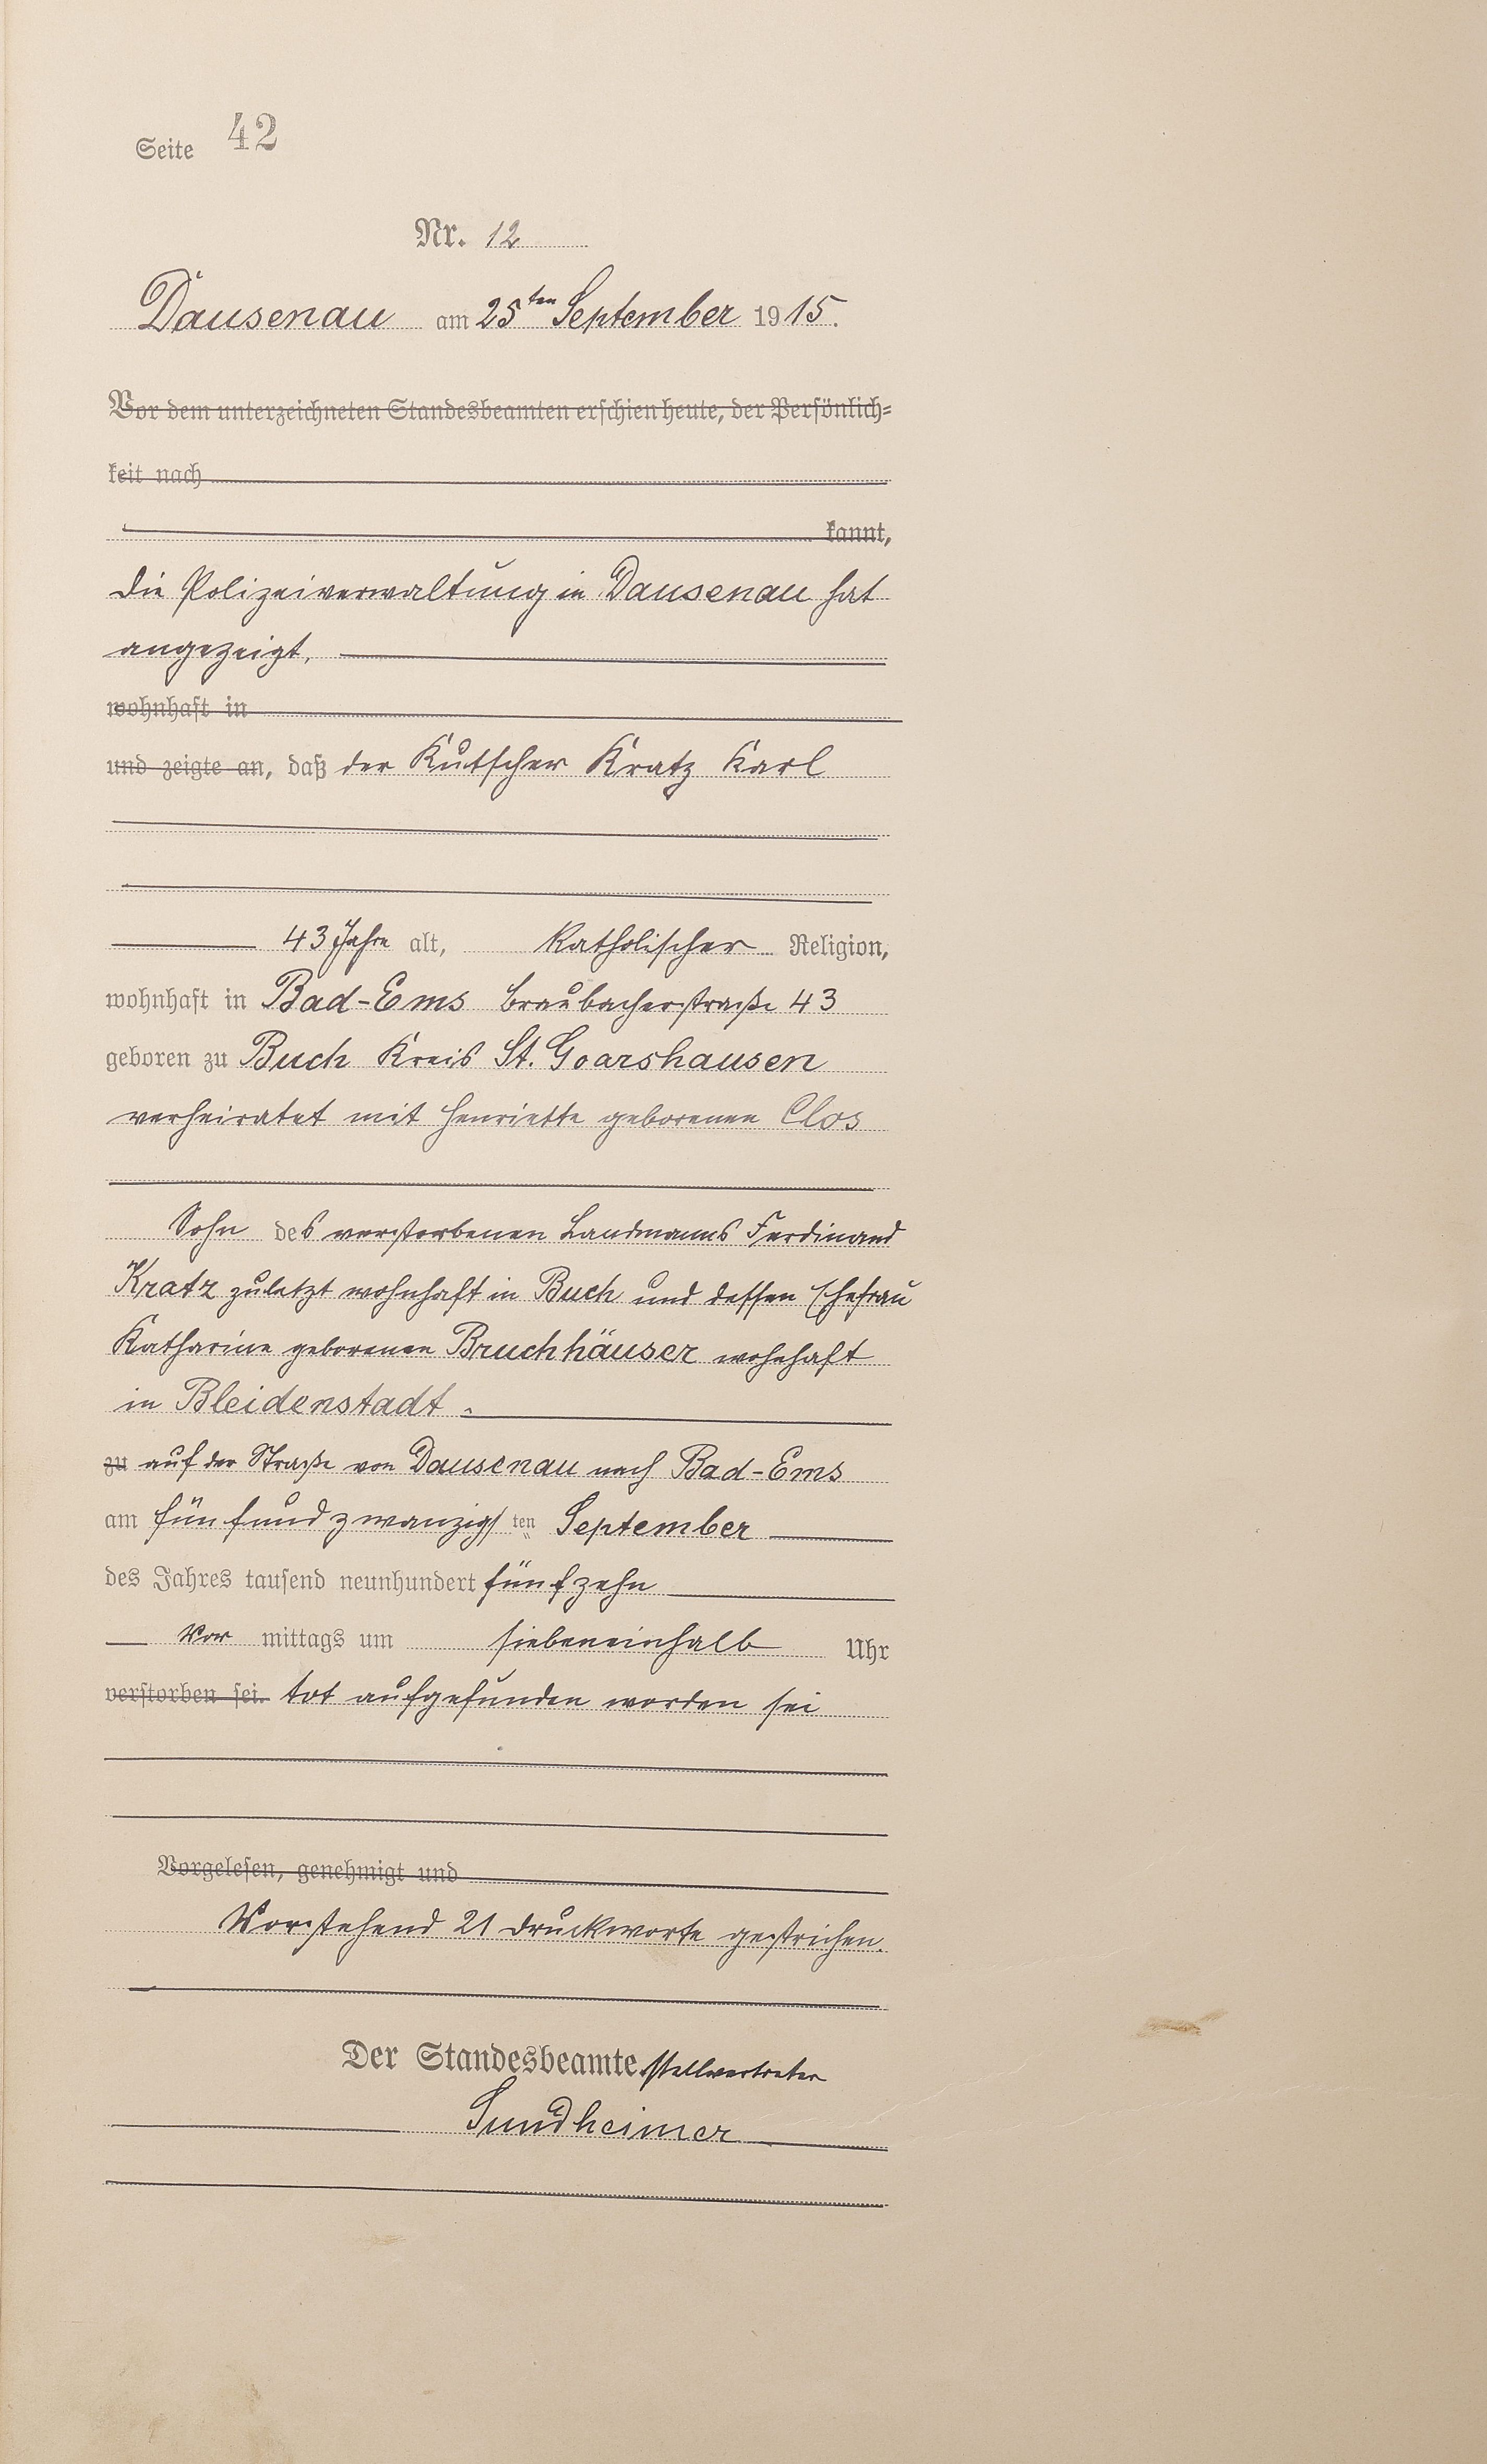 Seite 42
Nr. 12
Dausenau am 25ten September 1915.
Vor dem unterzeichneten Standesbeamten erschien heute, der Persönlich-
keit nach
kannt,
die Polizeiverwaltung in Dausenau hat
angezeigt,
wohnhaft in
und zeigte an, daß der Kutscher Kratz Karl
43 Jahre alt, katholischer Religion,
wohnhaft in Bad-Ems Braubacherstraße 43
geboren zu Buch Kreis St. Goarshausen
verheiratet mit Henriette geborenen Clos
Sohn des verstorbenen Landmanns Ferdinand
Kratz zuletzt wohnhaft in Buch und dessen Ehefrau
Katharine geborenen Bruchhäuser wohnhaft
in Bleidenstadt.
zu auf der Straße von Dausenau nach Bad-Ems
am fünfundzwanzigsten September
des Jahres tausend neunhundert fünfzehn
Vor mittags um siebeneinhalb Uhr
verstorben sei. tot aufgefunden worden sei
Vorgelesen, genehmigt und
Vorstehend 21 Druckworte gestrichen.
Der Standesbeamte. stellvertreter
Sundheimer